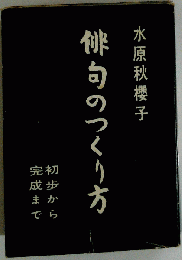 水原秋櫻子
俳句のつくり方
初歩から
完成まで